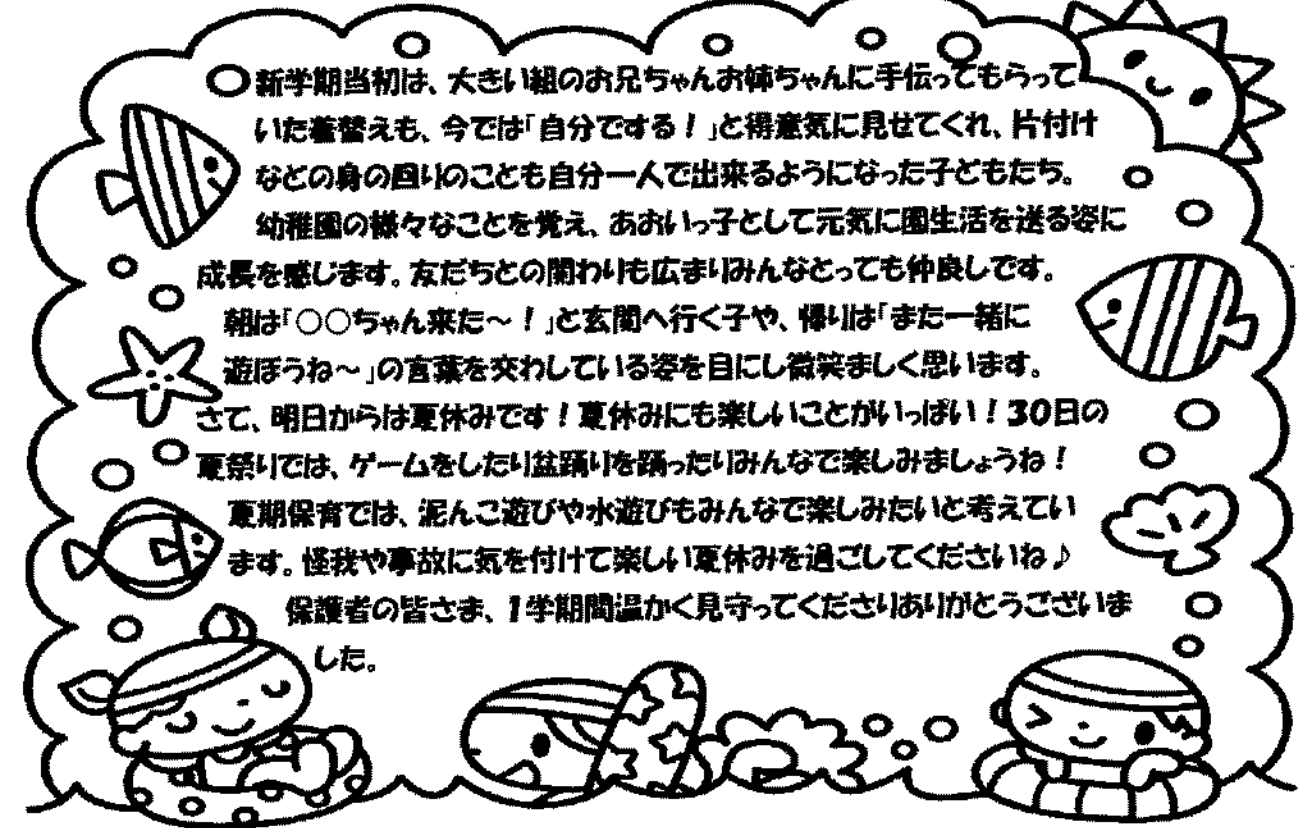 新学期当初は、大きい組のお兄ちゃんお姉ちゃんに手伝ってもらって
いた着替えも、今では「自分でする！」と得意気に見せてくれ、片付け
などの身の回りのことも自分一人で出来るようになった子どもたち。
幼稚園の様々なことを覚え、あおいっ子として元気に園生活を送る姿に
成長を感じます。友だちとの関わりも広まりみんなとっても仲良しです。
朝は「○○ちゃん来た～！」と玄関へ行く子や、帰りは「また一緒に
遊ぼうね～」の言葉を交わしている姿を目にし微笑ましく思います。
さて、明日からは夏休みです！夏休みにも楽しいことがいっぱい！30日の
夏祭りでは、ゲームをしたり盆踊りを踊ったりみんなで楽しみましょうね！
夏期保育では、泥んこ遊びや水遊びもみんなで楽しみたいと考えてい
ます。怪我や事故に気を付けて楽しい夏休みを過ごしてくださいね♪
保護者の皆さま、1学期間温かく見守ってくださりありがとうございま
した。